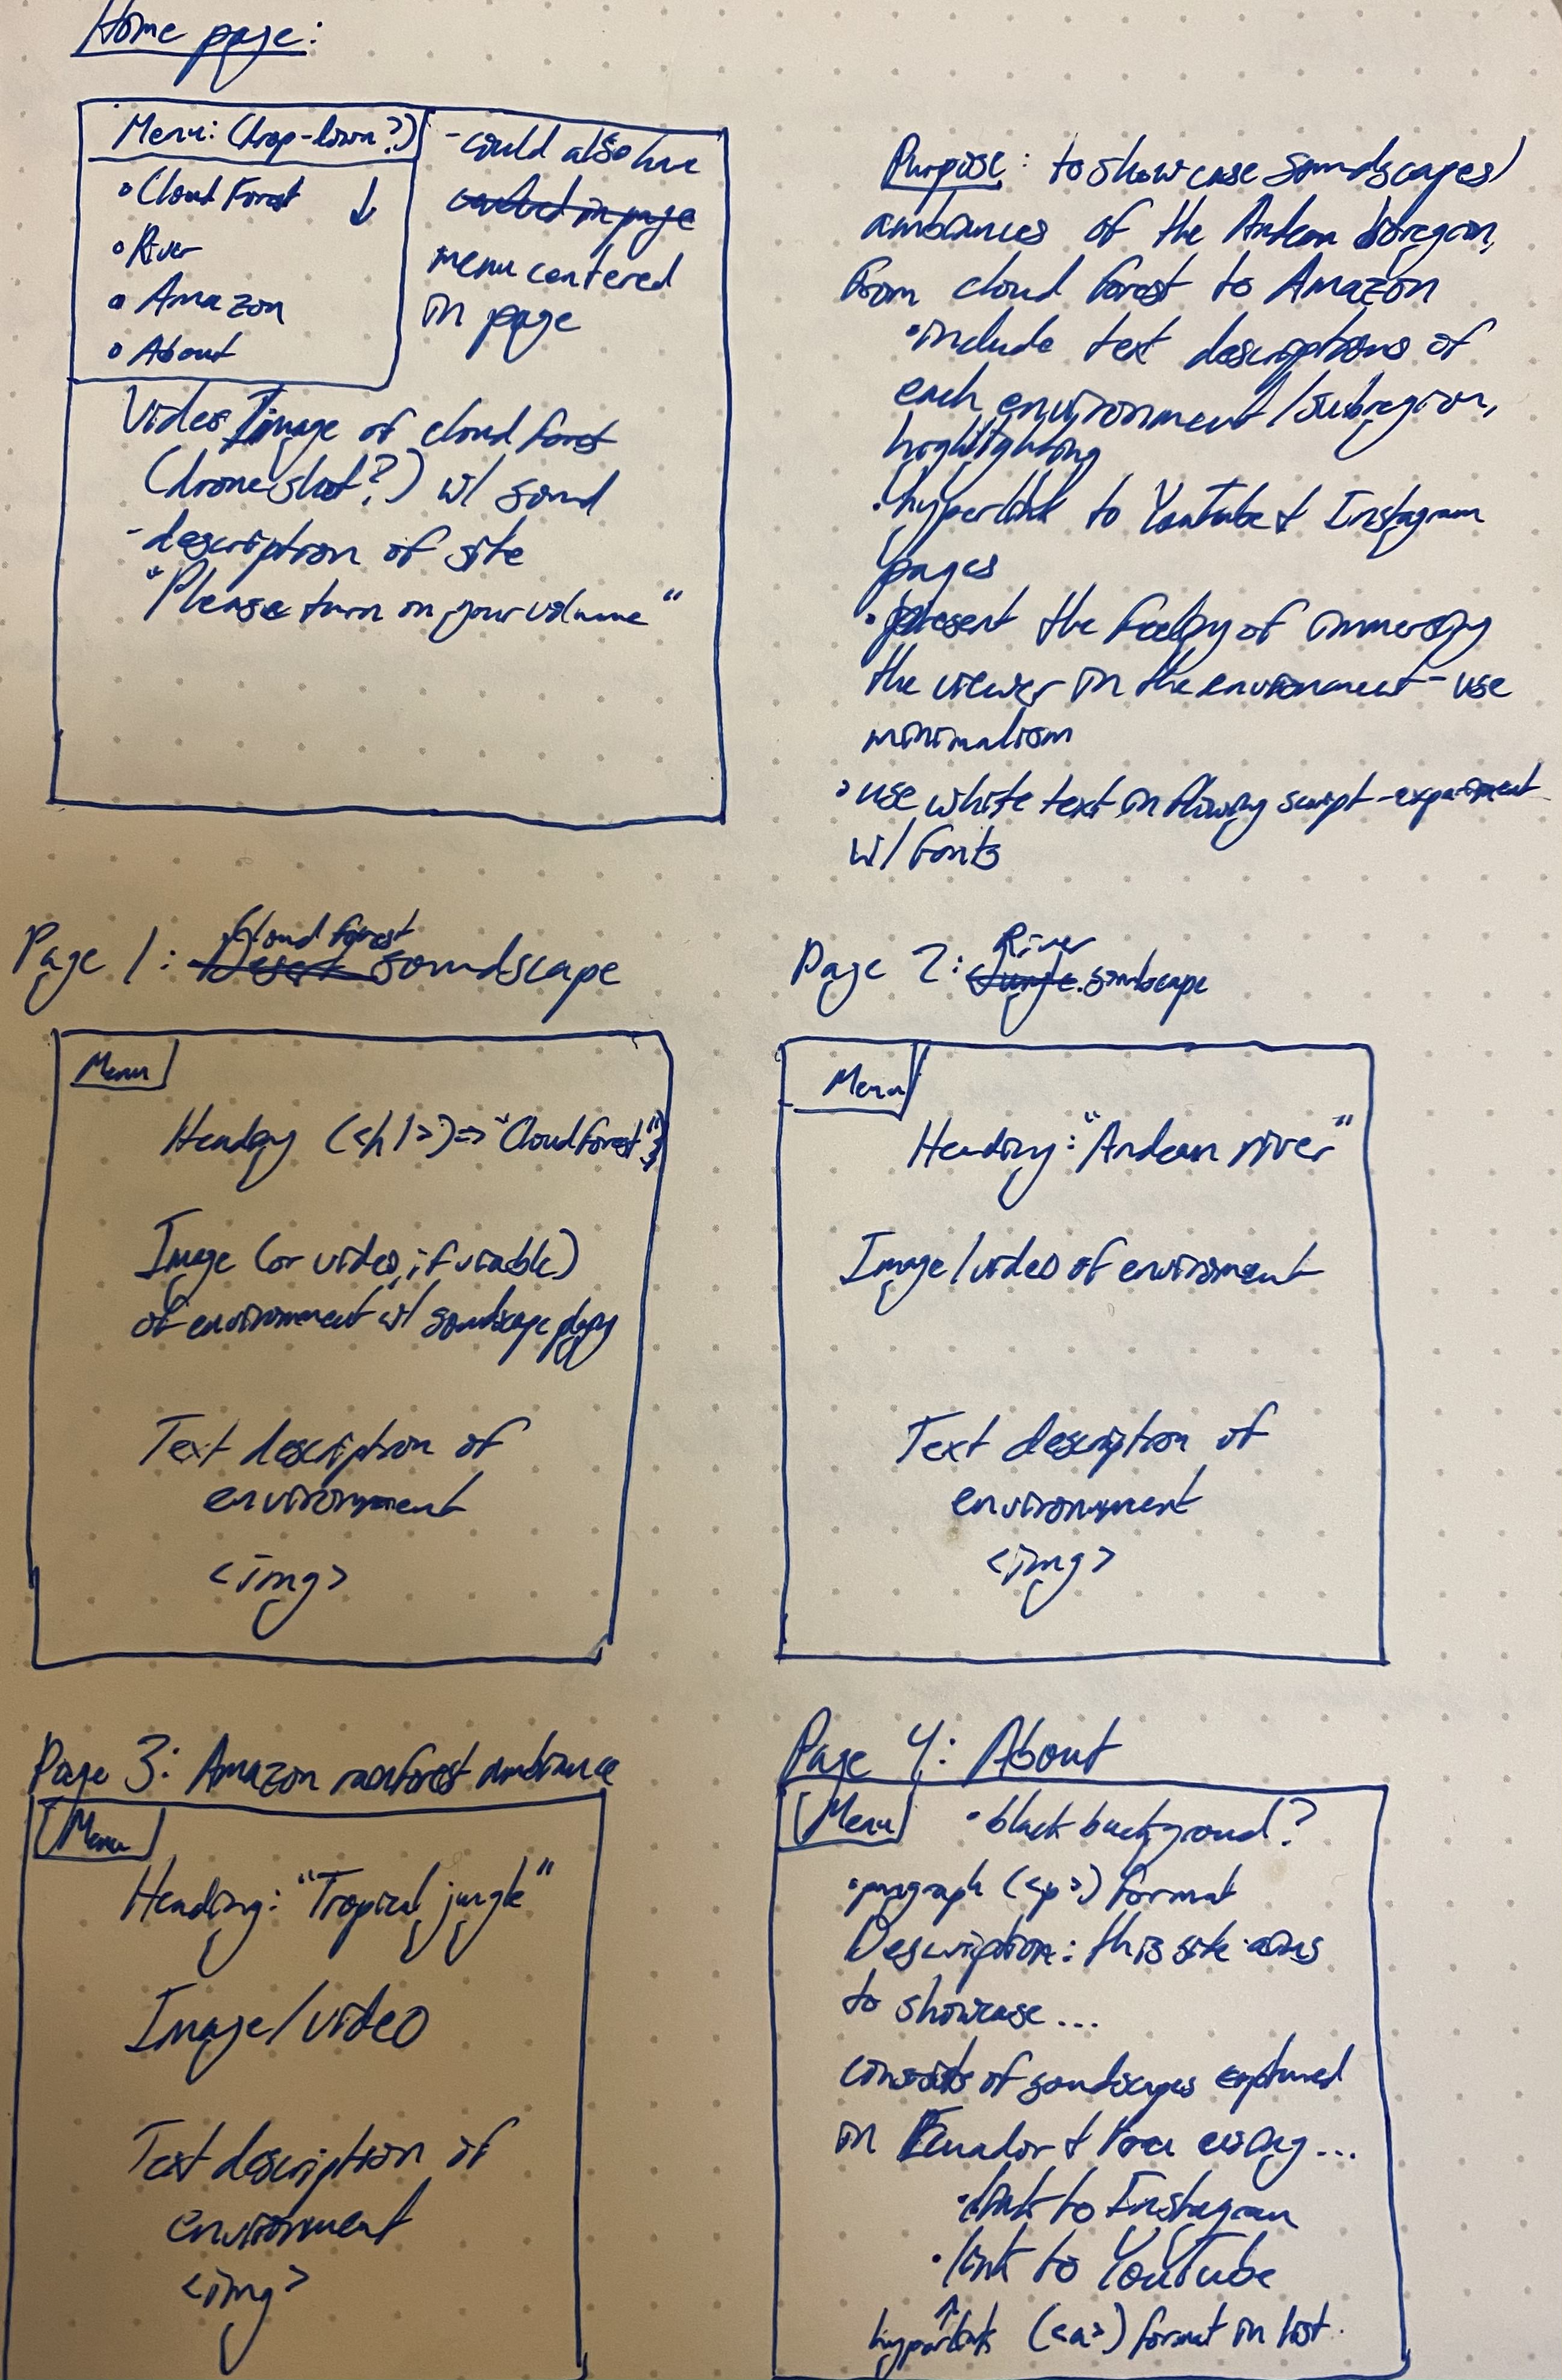 Home page:
Menu: (drop-down?)
° Cloud Forest ↓
° River
° Amazon
° About
- could also have
menu centered
in page
Video/Image of cloud forest
(drone shot?) w/ sound
- description of site
"Please turn on your volume"
Purpose: to showcase soundscapes/
ambiances of the Andean bioregion,
from cloud forest to Amazon
• include text descriptions of
each environment/subregion,
highlighting
• hyperlink to Youtube & Instagram
pages
• present the feeling of immersing
the viewer in the environment - use
minimalism
• use white text in flowing script - experiment
w/ fonts
Page 1: Cloud forest soundscape
Menu
Heading (<h1>) => "Cloud forest"
Image (or video, if viable)
of environment w/ soundscape playing
Text description of
environment
<img>
Page 2: River soundscape
Menu
Heading: "Andean river"
Image/video of environment
Text description of
environment
<img>
Page 3: Amazon rainforest ambiance
Menu
Heading: "Tropical jungle"
Image/video
Text description of
environment
<img>
Page 4: About
Menu • black background?
• paragraph (<p>) format
Description: this site aims
to showcase...
consists of soundscapes captured
in Ecuador & Peru using...
• link to Instagram
• link to YouTube
↑
hyperlinks (<a>) format in list.